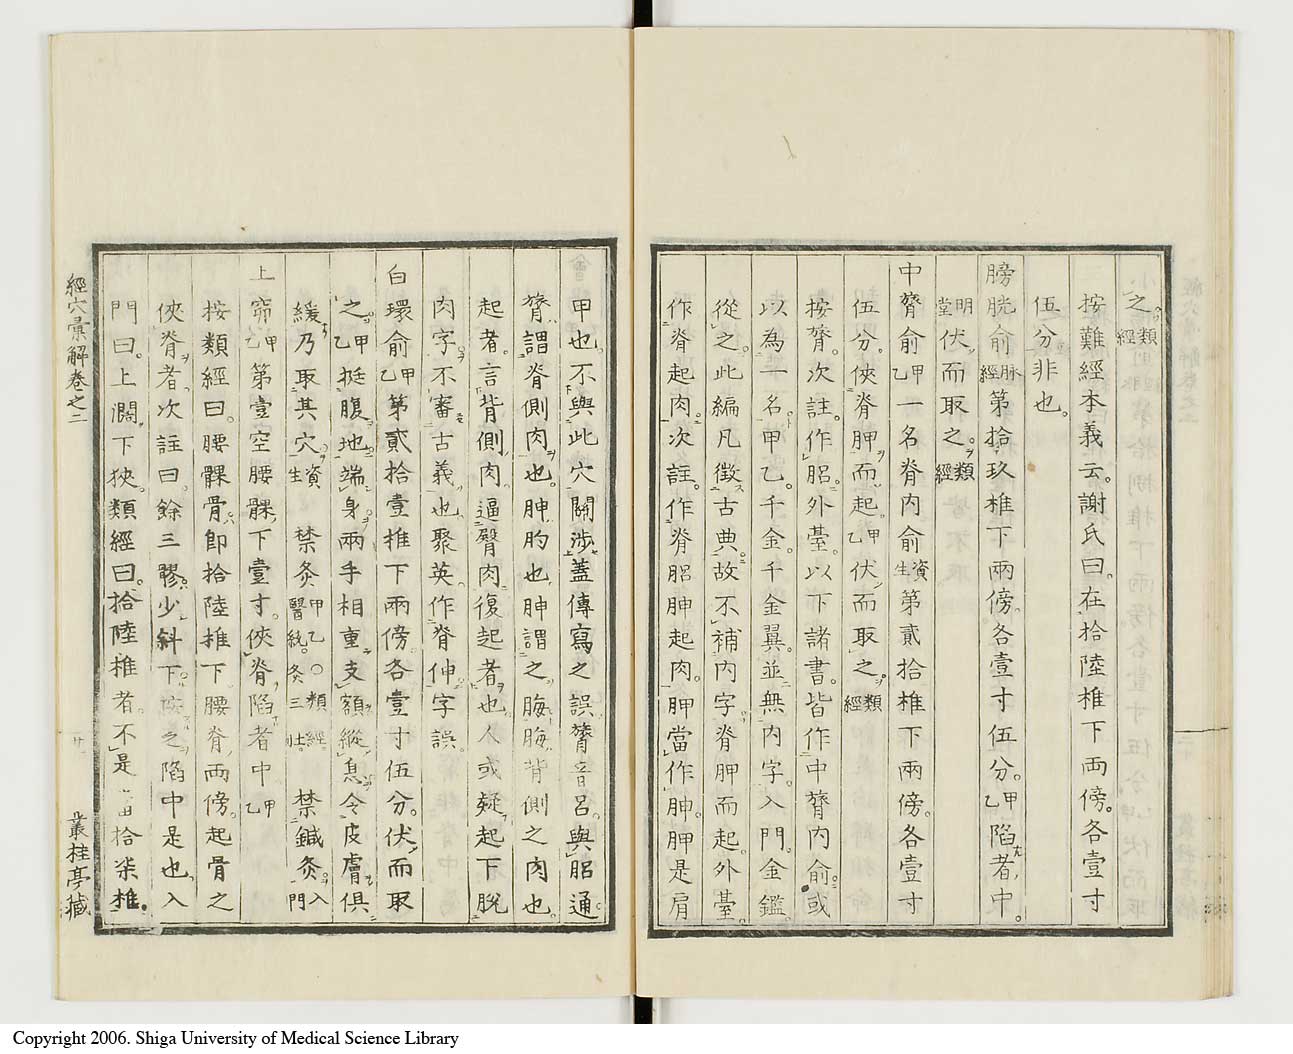 之類經
按難經本義云謝氏曰在拾陸椎下両傍各壹寸
伍分非也
膀胱俞脉經第拾玖椎下兩傍各壹寸伍分甲乙陷者中
明堂伏而取之類經
中膂俞甲乙一名脊内俞資生第貳拾椎下兩傍各壹寸
伍分俠脊胛而起甲乙伏而取之類經
按膂次註作䏰外臺以下諸書皆作中膂内俞或
以為一名甲乙千金千金翼並無内字入門金鑑
從之此編凡徴古典故不補内字脊胛而起外臺
作脊起肉次註作脊䏰胂起肉胛當作胂胛是肩
甲也不與此穴關渉蓋傳寫之誤膂音呂與䏰通
膂謂脊側肉也胂䏚也胂謂之脢脢背側之肉也
起者言背側肉逼臀肉復起者也人或疑起下脱
肉字不審古義也聚英作脊伸字誤
白環俞甲乙第貳拾壹椎下兩傍各壹寸伍分伏而取
之甲乙挺腹地端身兩手相重支額縱息令皮膚俱
緩乃取其穴資生禁灸甲乙○類經醫統灸三壯禁鍼灸入門
上窌甲乙第壹空腰髁下壹寸俠脊陷者中甲乙
按類經曰腰髁骨即拾陸椎下腰脊両傍起骨之
俠脊者次註曰餘三髎少斜下之陷中是也入
門曰上濶下狹類經曰拾陸椎者不是當拾柒椎
經穴彙解卷之二
叢桂亭藏
Copyright 2006. Shiga University of Medical Science Library